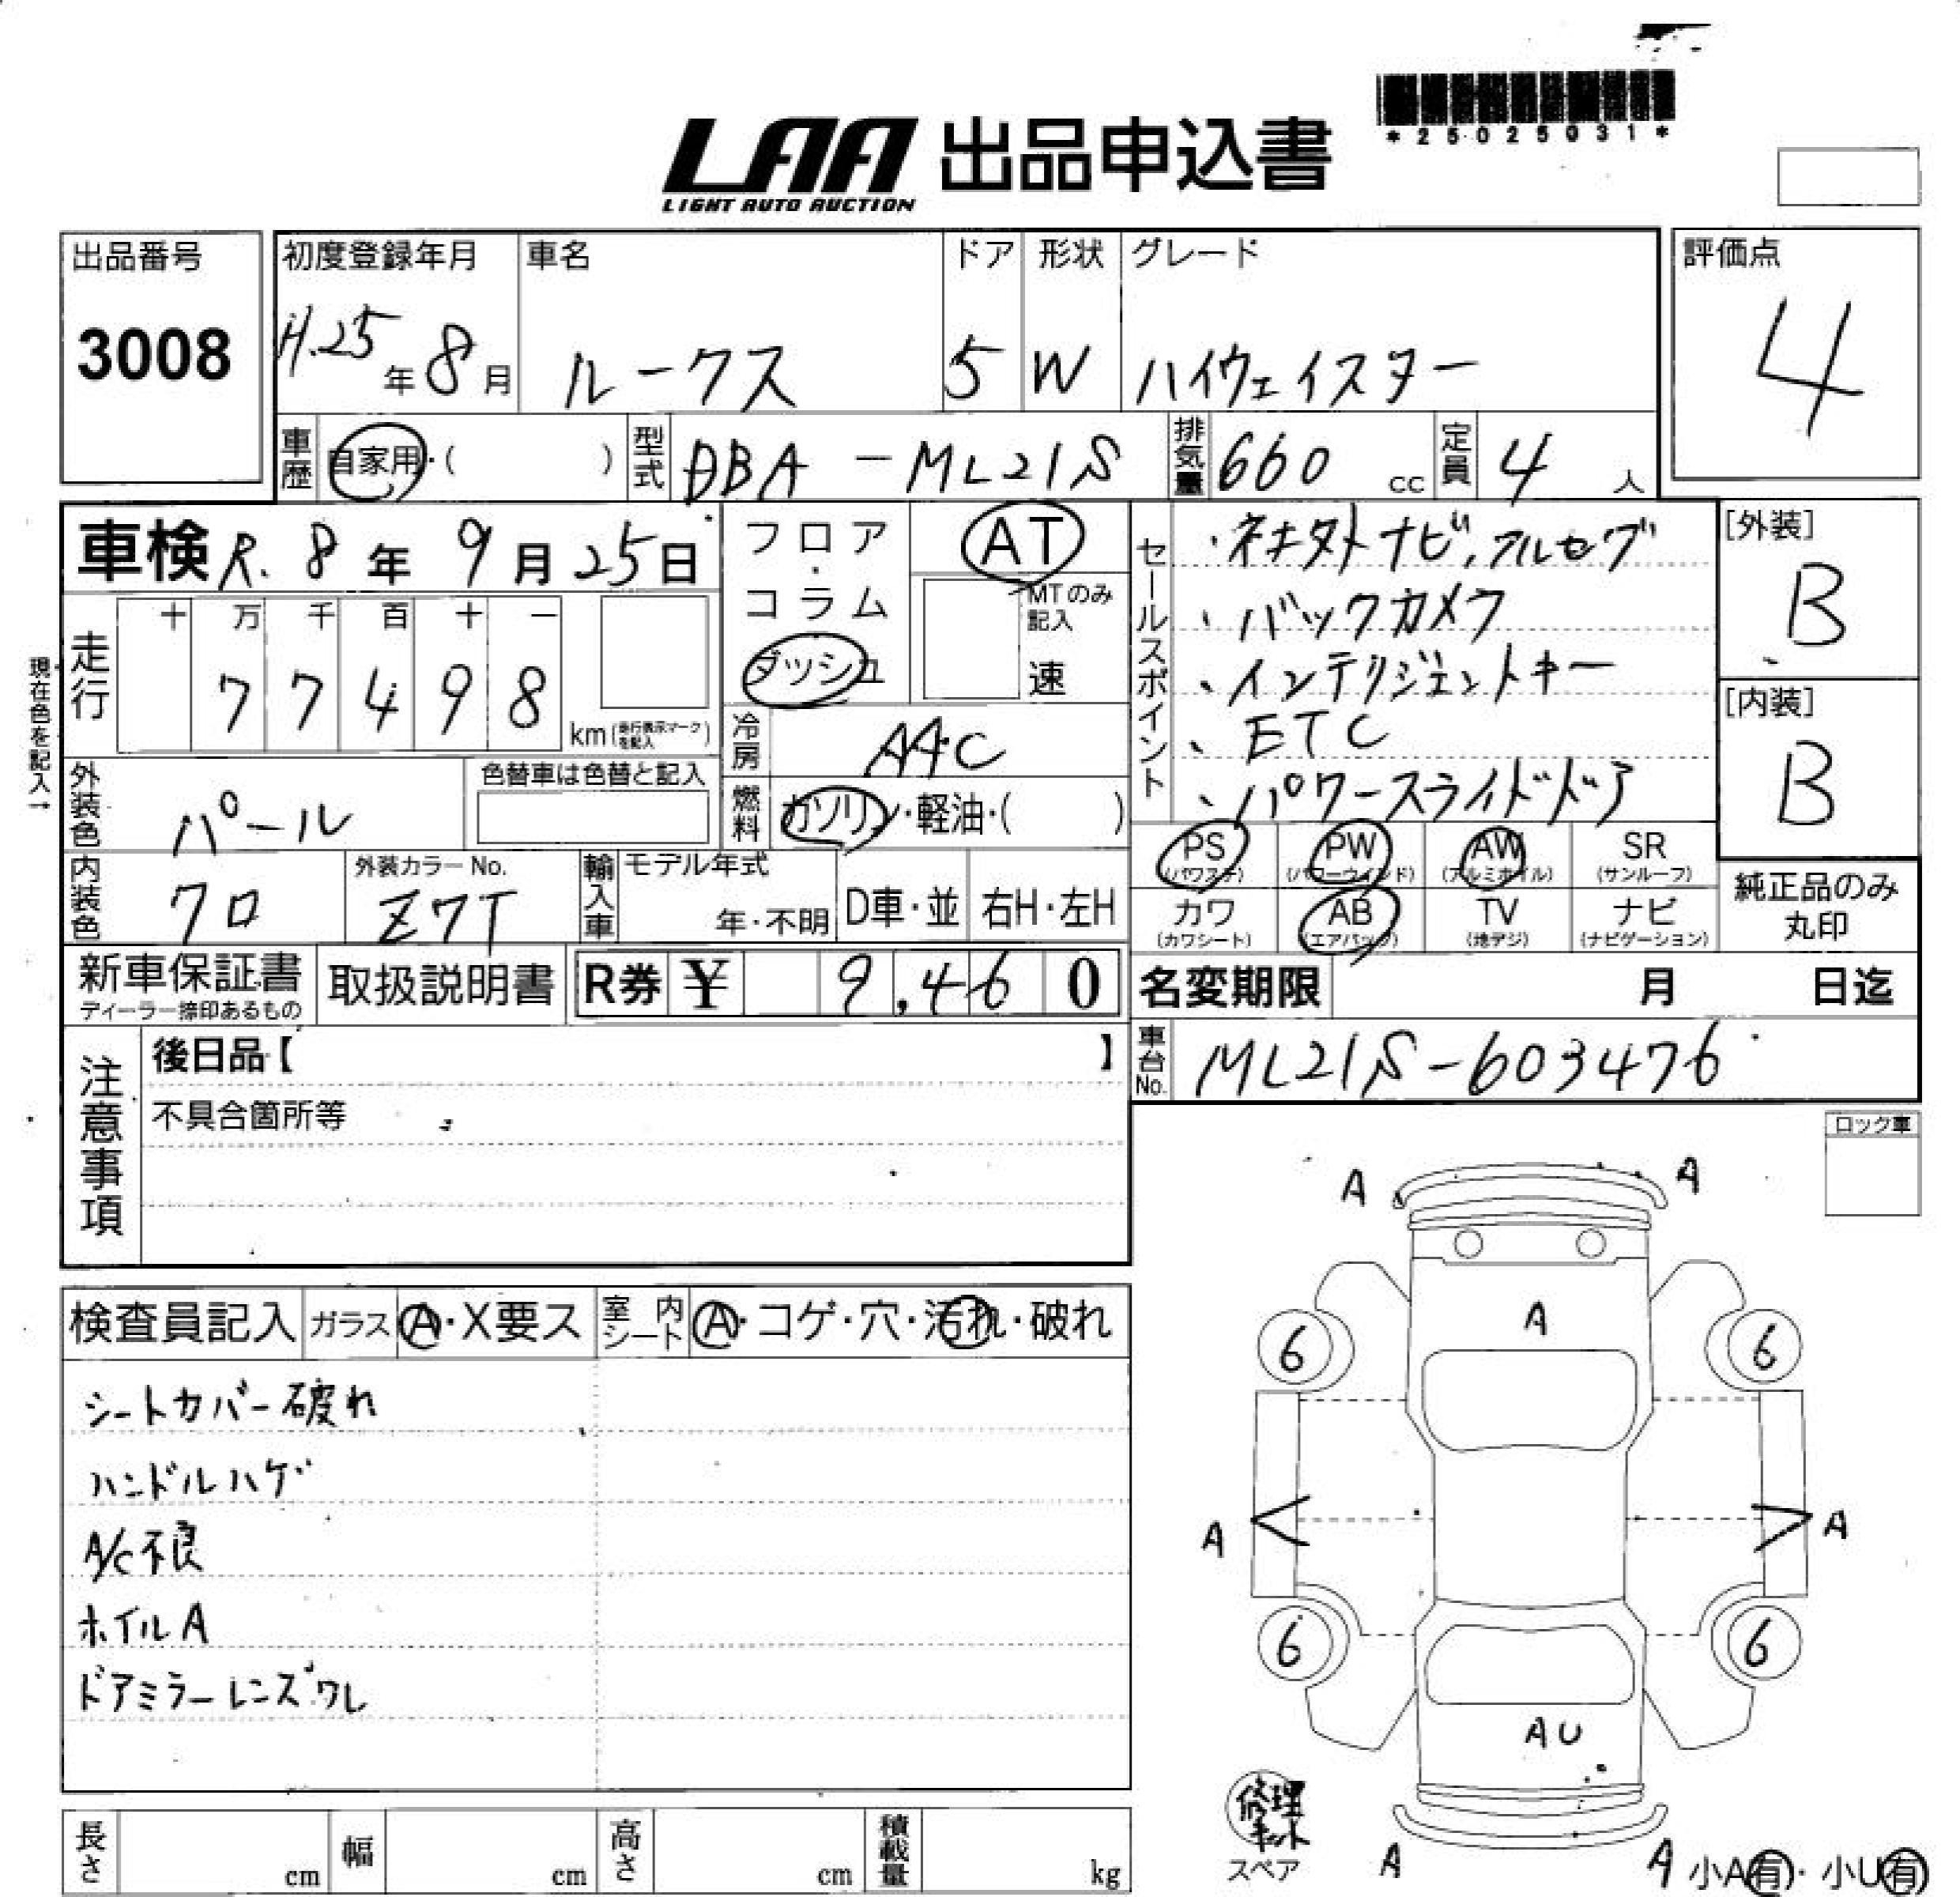 *25025031*
LAA 出品申込書
LIGHT AUTO AUCTION
出品番号
3008
初度登録年月
H.25年8月
車名
ルークス
ドア
5
形状
W
グレード
ハイウェイスター
評価点
4
車歴 自家用・( )
型式 DBA-ML21S
排気量 660 cc
定員 4 人
車検 R.8年9月25日
フロア・コラム
ダッシュ
AT
MTのみ記入
速
セールスポイント
・バックカメラ
・インテリジェントキー
・ETC
・パワースライドドア
[外装]
B
[内装]
B
現在色を記入→
走行
十 万 千 百 十 一
7 7 4 9 8
km(走行表示マークを記入)
冷房 AAC
燃料 ガソリン・軽油・( )
外装色 パール
色替車は色替と記入
内装色 クロ
外装カラーNo.
Z7T
輸入車
モデル年式
年・不明
D車・並
右H・左H
PS (パワステ)
PW (パワーウィンド)
AW (アルミホイル)
SR (サンルーフ)
カワ (カワシート)
AB (エアバッグ)
TV (地デジ)
ナビ (ナビゲーション)
純正品のみ
丸印
新車保証書
ディーラー捺印あるもの
取扱説明書
R券 ¥ 9,460
名変期限 月 日迄
車台No. ML21S-603476
注意事項
後日品【 】
不具合箇所等
ロック車
検査員記入
ガラス A・X要ス
室内シート A・コゲ・穴・汚れ・破れ
シートカバー破れ
ハンドルハゲ
A/C不良
ホイルA
ドアミラーレンズワレ
A A
A
6 6
A A
6 6
AU
修理キット
スペア
A A
小A有・小U有
長さ cm
幅 cm
高さ cm
積載量 kg